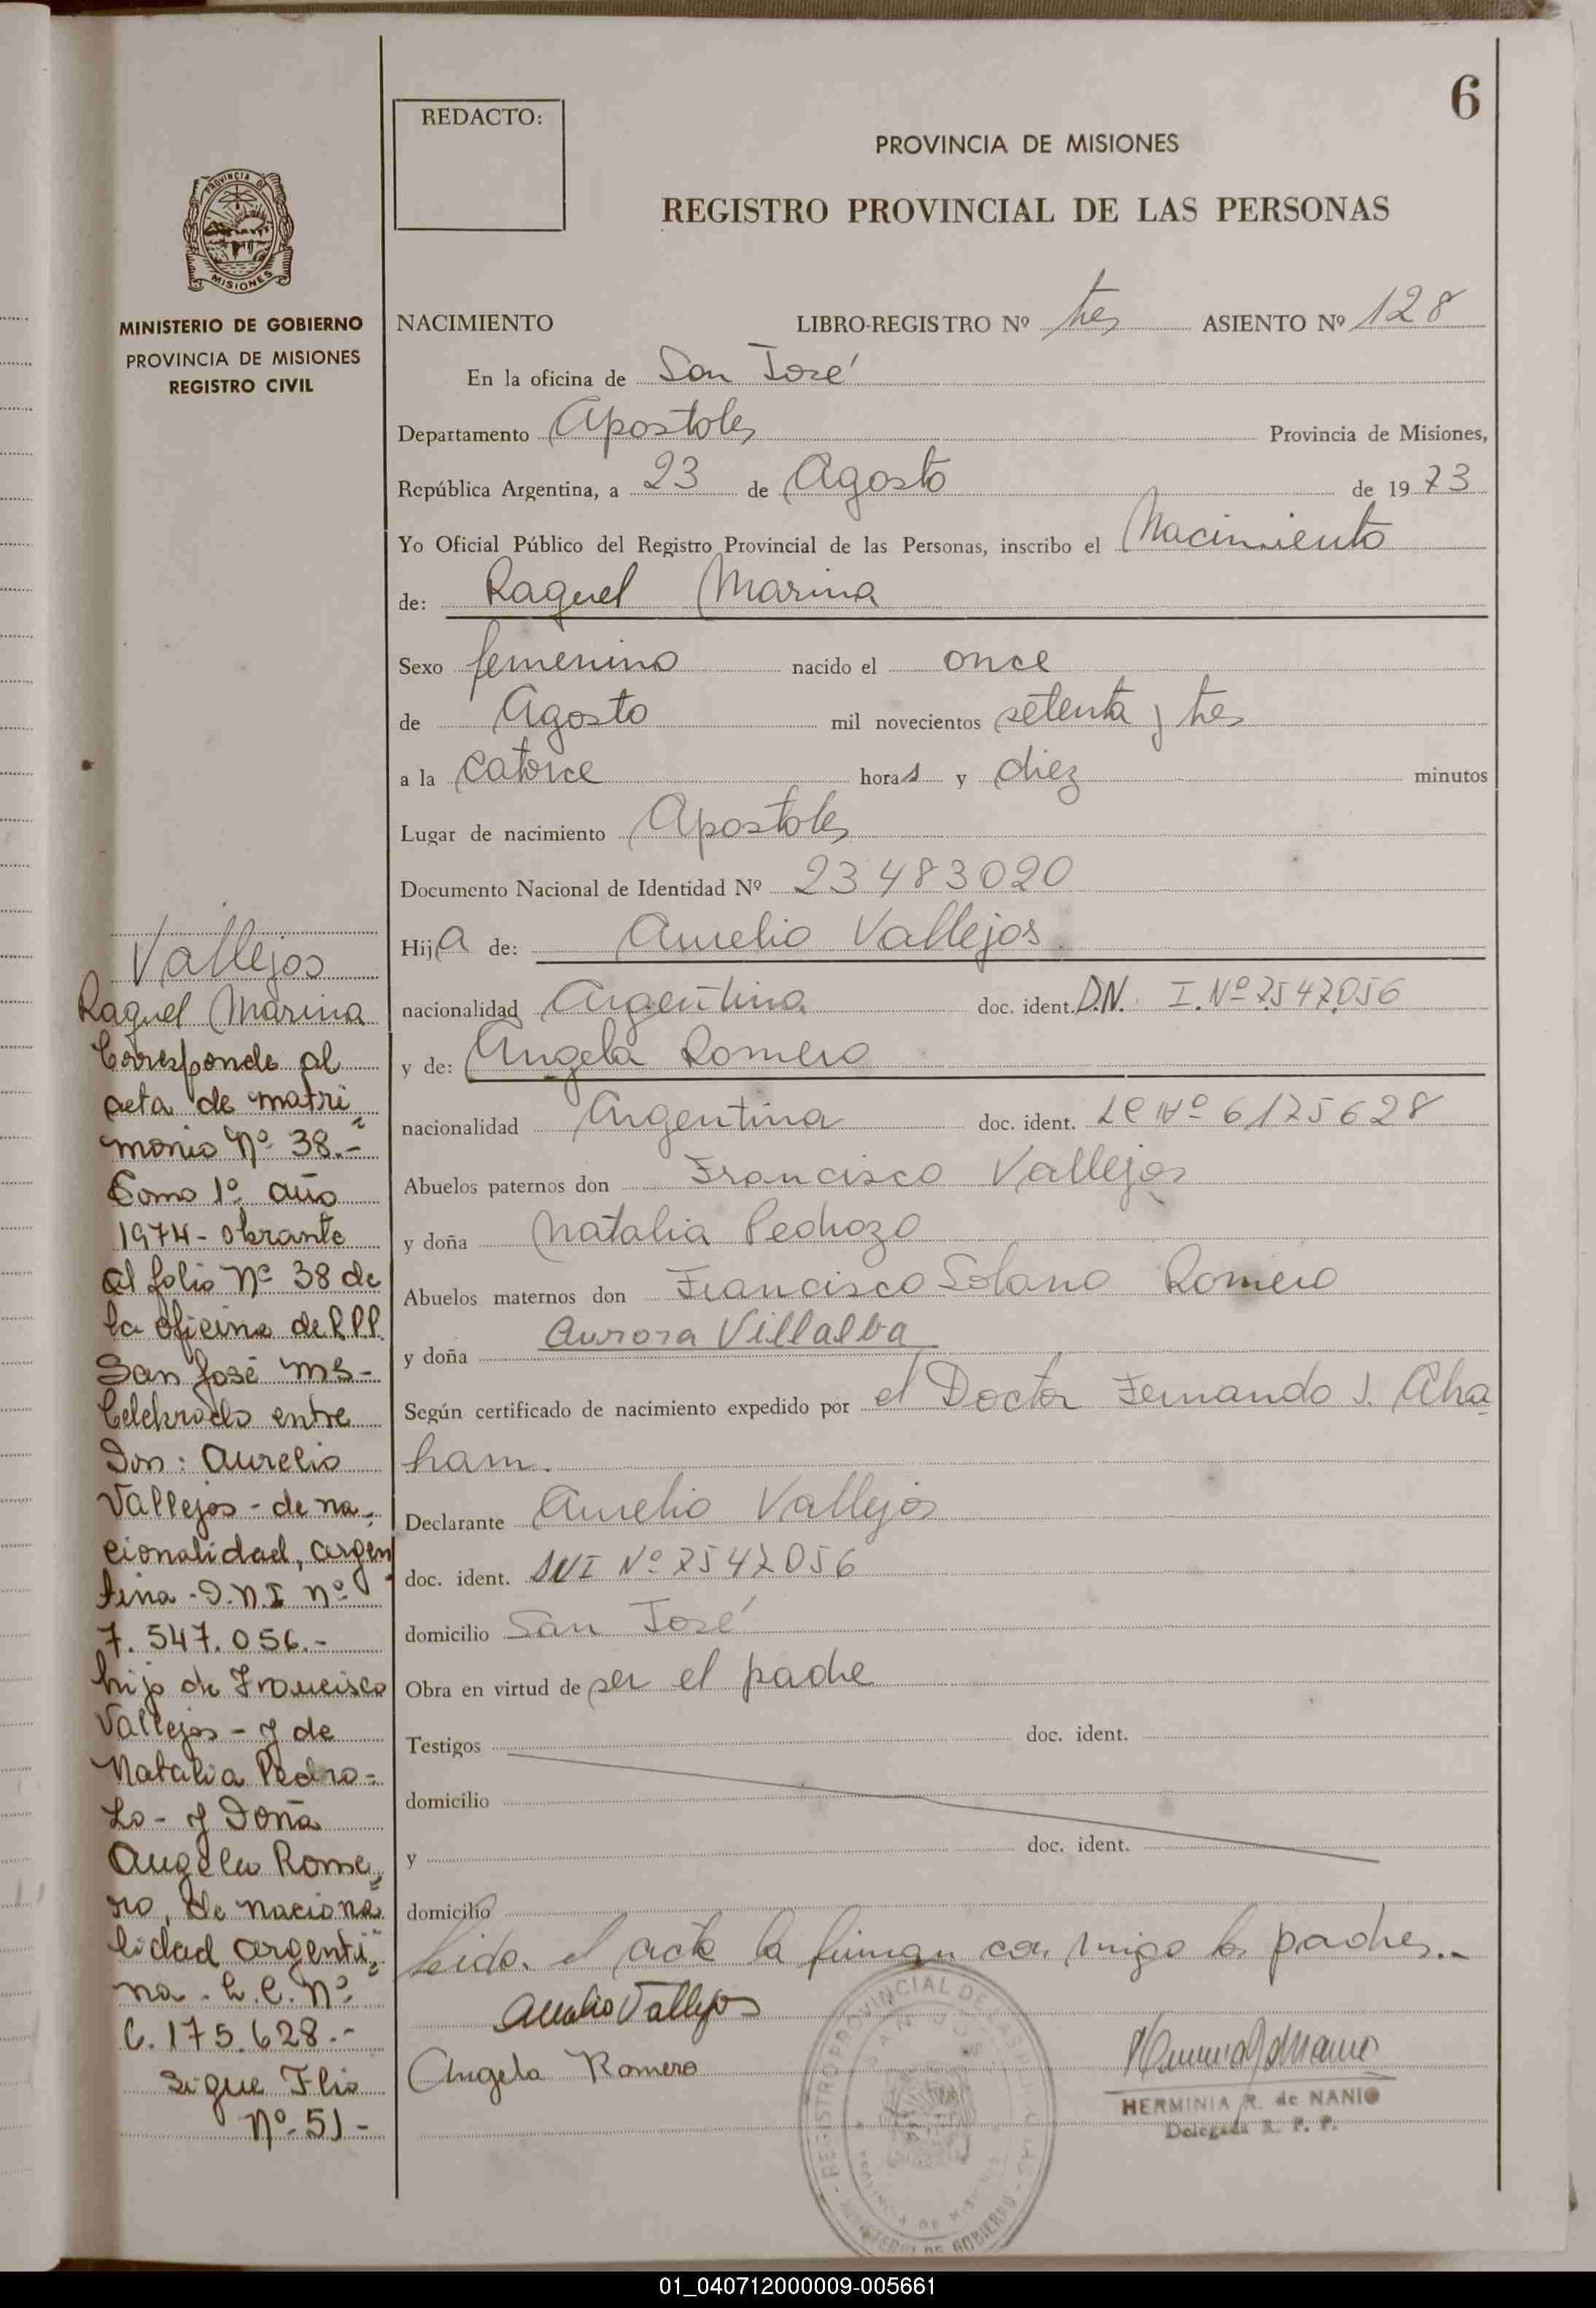 6
REDACTO:
PROVINCIA DE MISIONES
REGISTRO PROVINCIAL DE LAS PERSONAS
PROVINCIA DE
MISIONES
MINISTERIO DE GOBIERNO
PROVINCIA DE MISIONES
REGISTRO CIVIL
NACIMIENTO LIBRO-REGISTRO Nº tres ASIENTO Nº 128
En la oficina de San José
Departamento Apostoles Provincia de Misiones,
República Argentina, a 23 de Agosto de 1973
Yo Oficial Público del Registro Provincial de las Personas, inscribo el Nacimiento
de: Raquel Marina
Sexo femenino nacido el once
de Agosto mil novecientos setenta y tres
a la catorce horas y diez minutos
Lugar de nacimiento Apostoles
Documento Nacional de Identidad Nº 23483020
Hija de: Aurelio Vallejos
nacionalidad Argentina doc. ident. D.N. I. Nº 7547056
y de: Angela Romero
nacionalidad Argentina doc. ident. LC Nº 6175628
Abuelos paternos don Francisco Vallejos
y doña Natalia Pedrozo
Abuelos maternos don Francisco Solano Romero
y doña Aurora Villalba
Según certificado de nacimiento expedido por el Doctor Fernando J. Abra
ham.
Declarante Aurelio Vallejos
doc. ident. DNI Nº 7547056
domicilio San José
Obra en virtud de ser el padre
Testigos doc. ident.
domicilio
y doc. ident.
domicilio
Leida el acta la firman con migo los padres.-
Aurelio Vallejos
Angela Romero
HERMINIA R. de NANIO
Delegada R. P. P.
REGISTRO PROVINCIAL DE LAS PERSONAS
SAN JOSE
PROVINCIA DE MISIONES
MINISTERIO DE GOBIERNO
Vallejos
Raquel Marina
Corresponde al
acta de matri
monio Nº 38.-
Tomo 1º año
1974 - obrante
al folio Nº 38 de
la oficina de R.P.P.
San José Ms-
Celebrado entre
Don: Aurelio
Vallejos - de na-
cionalidad, argen
tina - D.N.I Nº
7.547.056.-
hijo de Francisco
Vallejos - y de
Natalia Pedro-
zo - y Doña
Angela Rome
ro, de naciona
lidad argenti
na - L.C. Nº
6.175.628.-
Sigue Flio
Nº 51 -
01_040712000009-005661